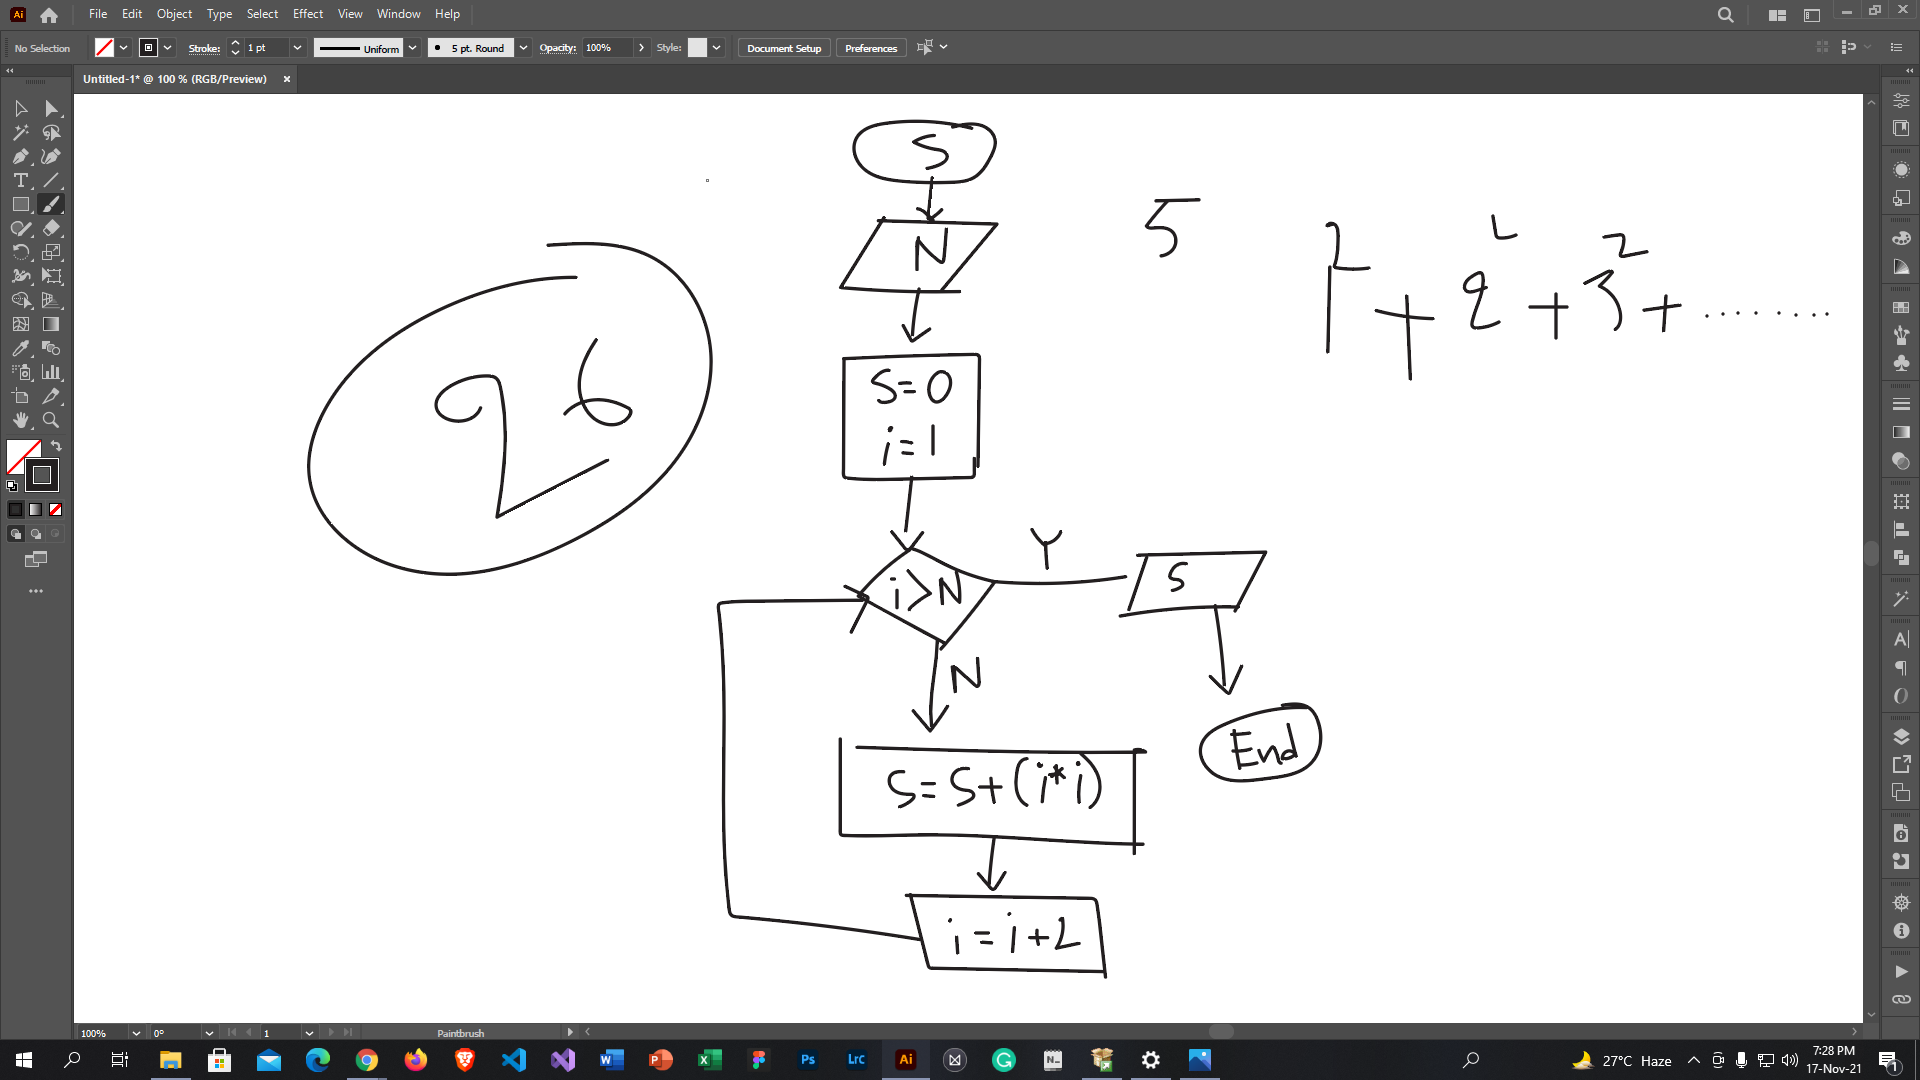 File Edit Object Type Select Effect View Window Help
No Selection Stroke: 1 pt Uniform 5 pt. Round Opacity: 100% Style: Document Setup Preferences
Untitled-1* @ 100 % (RGB/Preview)
S
N
5
1² + 2² + 3² + .........
S=0
i=1
i>N
Y
S
N
End
S=S+(i*i)
i=i+2
100% 0° 1 Paintbrush
27°C Haze
7:28 PM
17-Nov-21